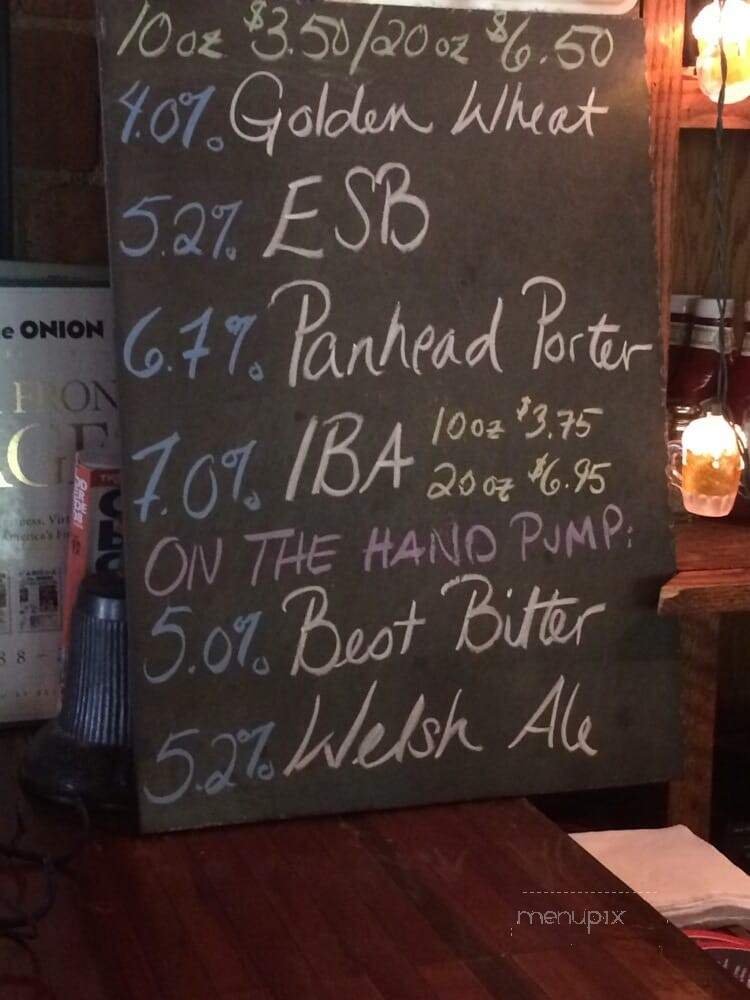 10oz $3.50/20oz $6.50
4.0% Golden Wheat
5.2% ESB
6.7% Panhead Porter
7.0% IBA 10oz $3.75
20oz $6.95
ON THE HAND PUMP:
5.0% Best Bitter
5.2% Welsh Ale
e ONION
FRON
menupix